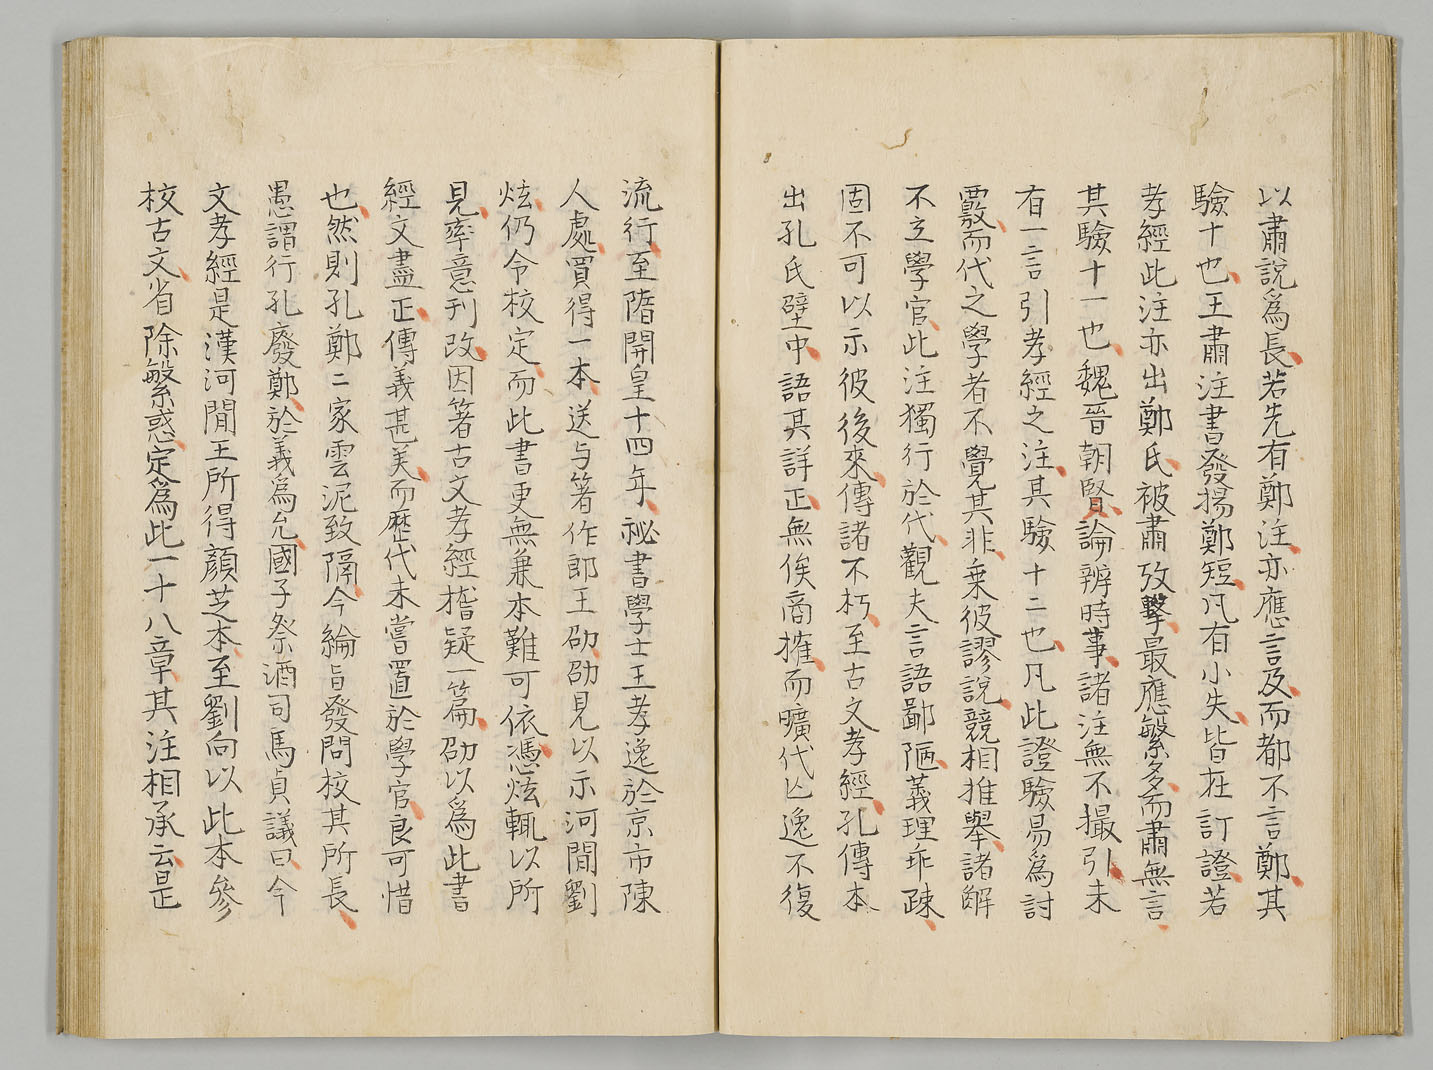 以肅說爲長若先有鄭注亦應言及而都不言鄭其
驗十也王肅注書發揚鄭短凡有小失皆在訂證若
孝經此注亦出鄭氏被肅攻擊最應繁多而肅無言
其驗十一也魏晉朝賢論辨時事諸注無不撮引未
有一言引孝經之注其驗十二也凡此證驗易爲討
覈而代之學者不覺其非乗彼謬說競相推舉諸解
不立學官此注獨行於代觀夫言語鄙陋義理乖疎
固不可以示彼後來傳諸不朽至古文孝經孔傳本
出孔氏壁中語其詳正無俟商搉而曠代亾逸不復
流行至隋開皇十四年祕書學士王孝逸於京市陳
人處買得一本送与著作郎王劭劭見以示河間劉
炫仍令校定而此書更無兼本難可依憑炫輒以所
見率意刊改因著古文孝經稽疑一篇劭以爲此書
經文盡正傳義甚美而歷代未嘗置於學官良可惜
也然則孔鄭二家雲泥致隔今綸旨發問校其所長
愚謂行孔廢鄭於義爲允國子祭酒司馬貞議曰今
文孝經是漢河間王所得顏芝本至劉向以此本參
校古文省除繁惑定爲此一十八章其注相承云是